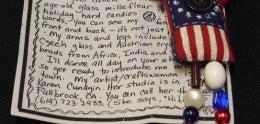 age-old glass millefiori
holiday, hard candies
words. You can see my
front and back - it's not just
My arms and legs include
Czech glass and Austrian crys
beads from Africa, India and
I'll dance all day on your s
so get ready to introduce me ar
town. My artist/craftswoman
Karen Cundgin. Her studio is in
Fallbrook, CA. You can call her th
(619) 723-2933. (She says, "Hi